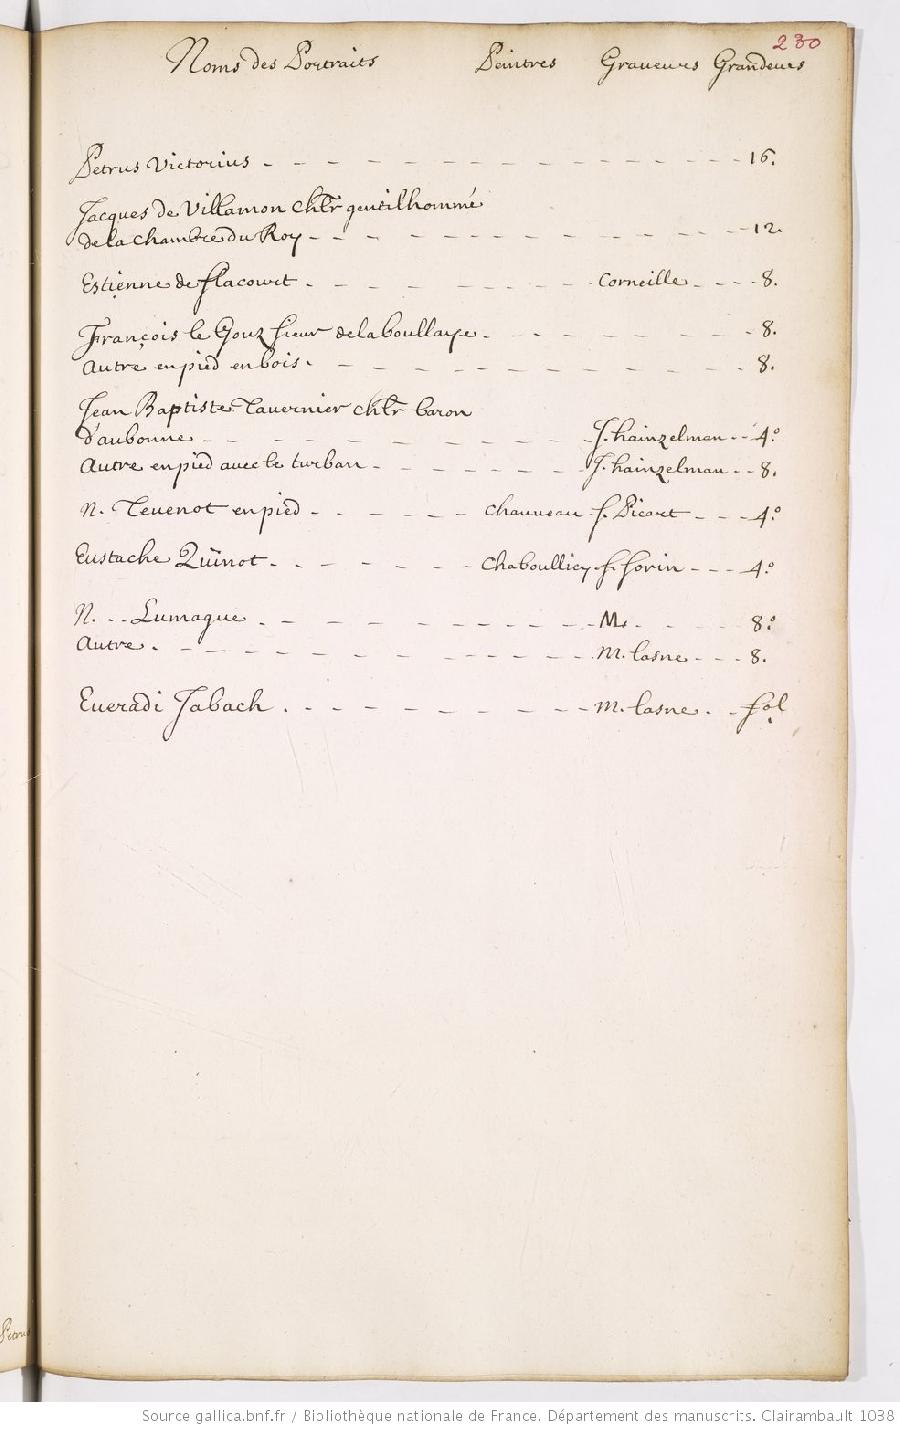 230
Noms des Portraits Peintres Graveurs Grandeurs
Petrus Victorius - - - - - - - - - - - - 16.
Jacques de Villamon chlr gentilhomme
de la chambre du Roy - - - - - - - - - - 12.
Estienne de flacourt - - - - - - - - Corneille - - - - 8.
François le Gouz sieur de la boullaye - - - - - - 8.
Autre en pied en bois - - - - - - - - - - 8.
Jean Baptiste Tavernier chlr baron
d'aubonne - - - - - - - - - - J. hainzelman - - 4.º
Autre en pied avec le turban - - - - - - - J. hainzelman - - 8.
N. Tevenot en pied - - - - - chauveau f. Picart - - - 4.º
Eustache Quinot - - - - - - Chaboullicy f. Jorin - - - 4.º
N. - - Lumague - - - - - - - - - M. - - - 8.º
Autre - - - - - - - - - - - M. lasne - - - 8.
Everadi Jabach - - - - - - - - - M. lasne - - fol
Petrus
Source gallica.bnf.fr / Bibliothèque nationale de France. Département des manuscrits. Clairambault 1038